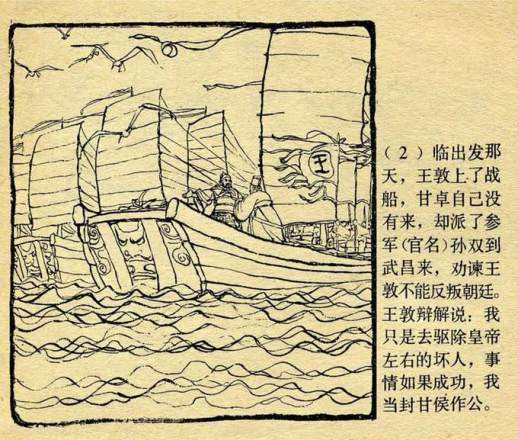 王
（2）临出发那
天，王敦上了战
船，甘卓自己没
有来，却派了参
军（官名）孙双到
武昌来，劝谏王
敦不能反叛朝廷。
王敦辩解说：我
只是去驱除皇帝
左右的坏人，事
情如果成功，我
当封甘侯作公。